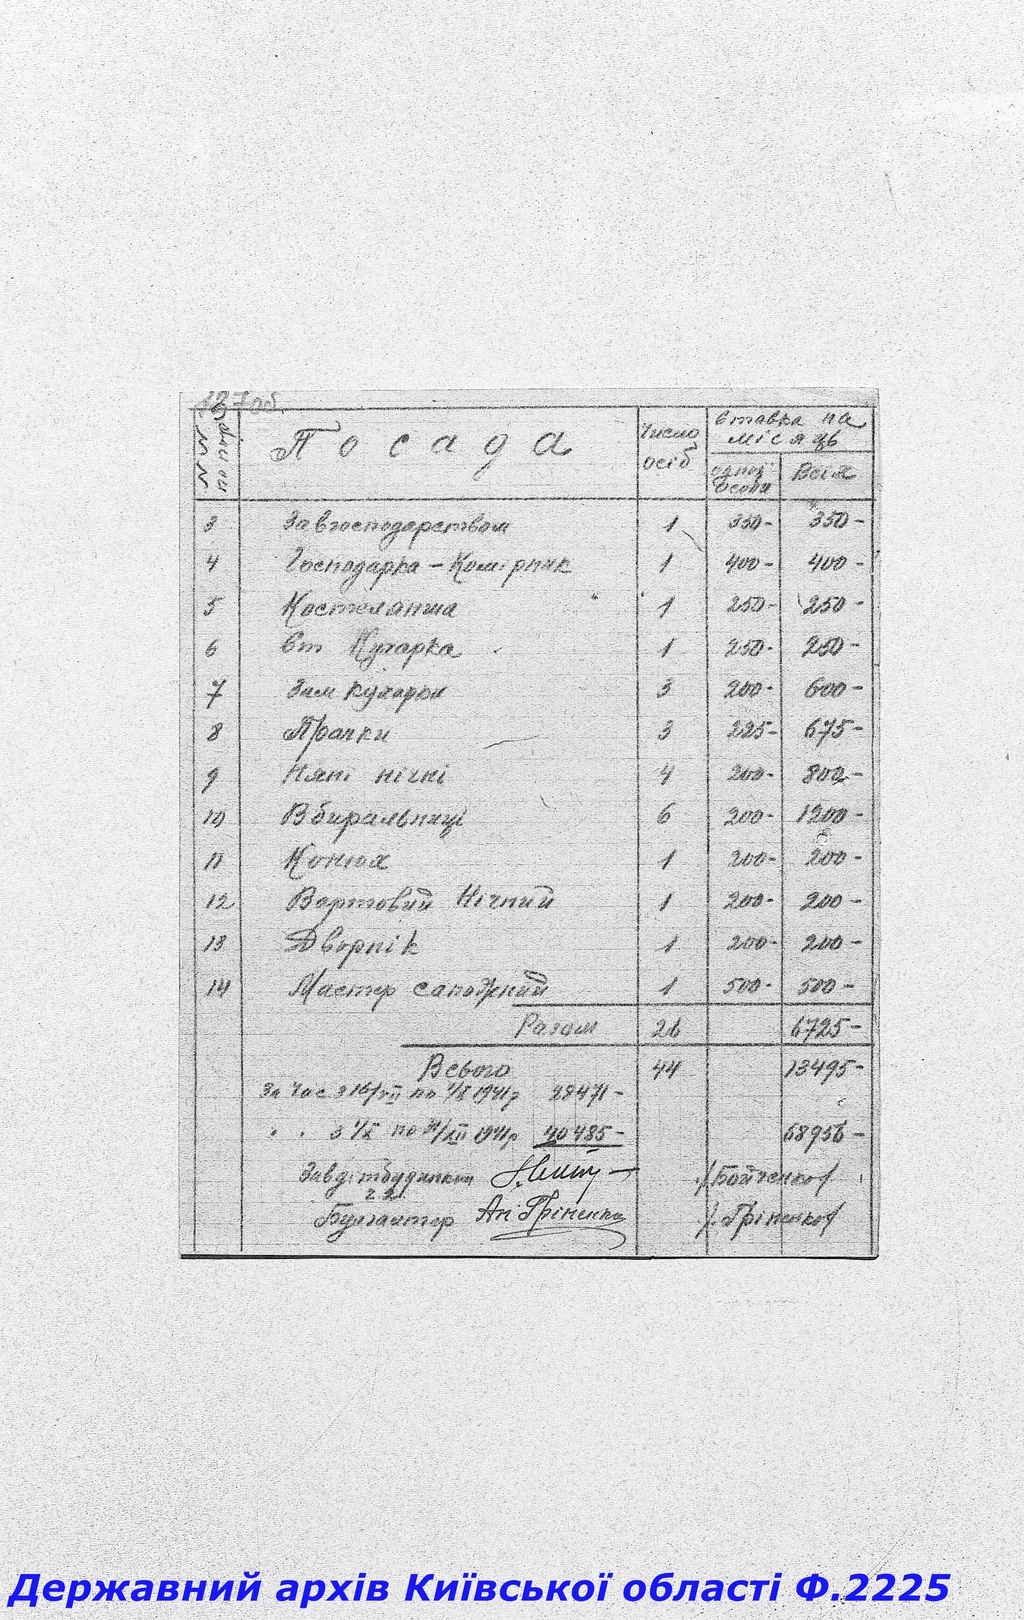 127 об.
Посада
Число осіб
Ставка на місяць
одної особи
Всія
3 Завгосподарством 1 350- 350-
4 Господарка - Комірник 1 400- 400-
5 Костелянша 1 250- 250-
6 Ст Кухарка 1 250- 250-
7 Зам кухарки 3 200- 600-
8 Прачки 3 225- 675-
9 Няні нічні 4 200- 800-
10 Вбиральниці 6 200- 1200-
11 Конюх 1 200- 200-
12 Вартовий Нічний 1 200- 200-
13 Дворнік 1 200- 200-
14 Мастер сапожний 1 500- 500-
Разом 26 6725-
Всього 44 13495-
За час з 16/VII по 1/X 1941р 28471-
" " з 1/X по 31/XII 1941р 40485- 68956-
Завдітбудинком /Бойченков/
ч 2
Бухгалтер Ан. Гріненко /. Гріненков/
Державний архів Київської області Ф.2225